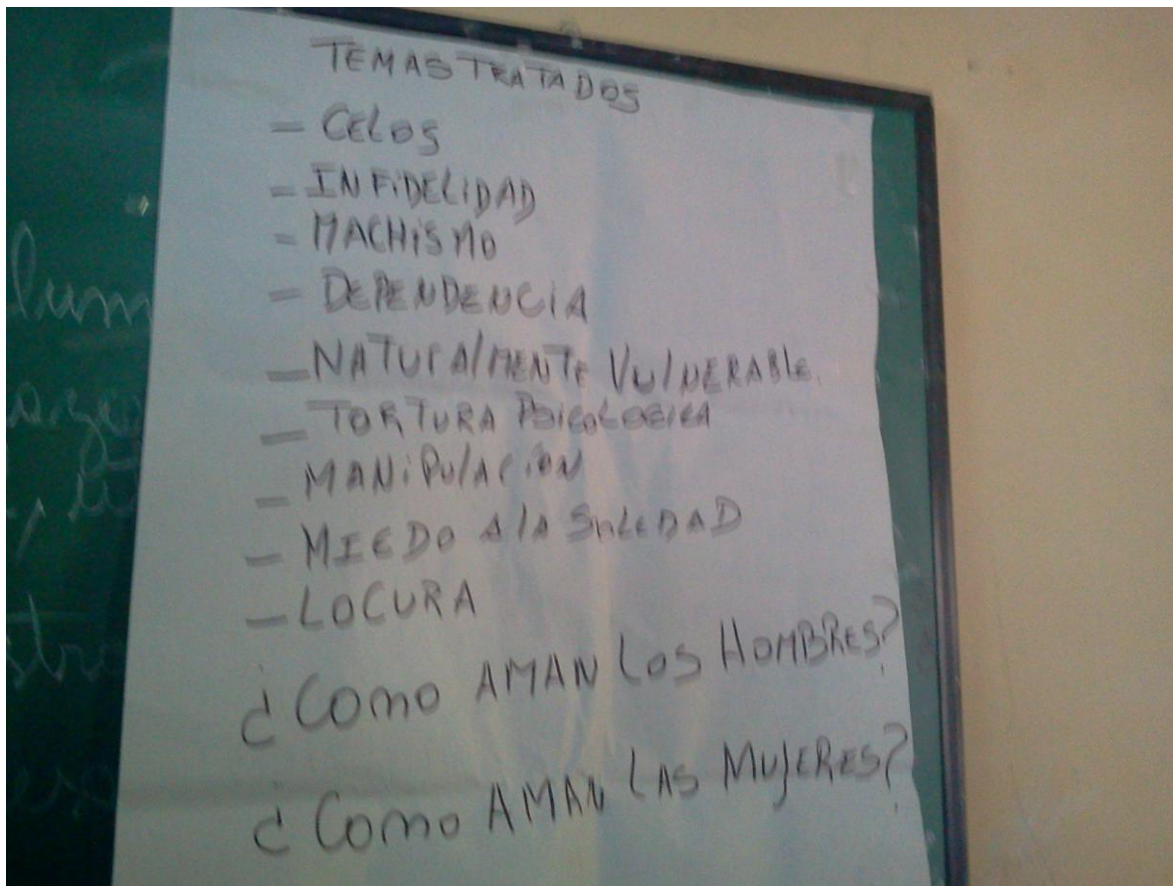 TEMAS TRATADOS
- CELOS
- INFIDELIDAD
- MACHISMO
- DEPENDENCIA
- NATURALMENTE VULNERABLE.
- TORTURA PSICOLOGICA
- MANIPULACION
- MIEDO A LA SOLEDAD
- LOCURA
¿COMO AMAN LOS HOMBRES?
¿COMO AMAN LAS MUJERES?